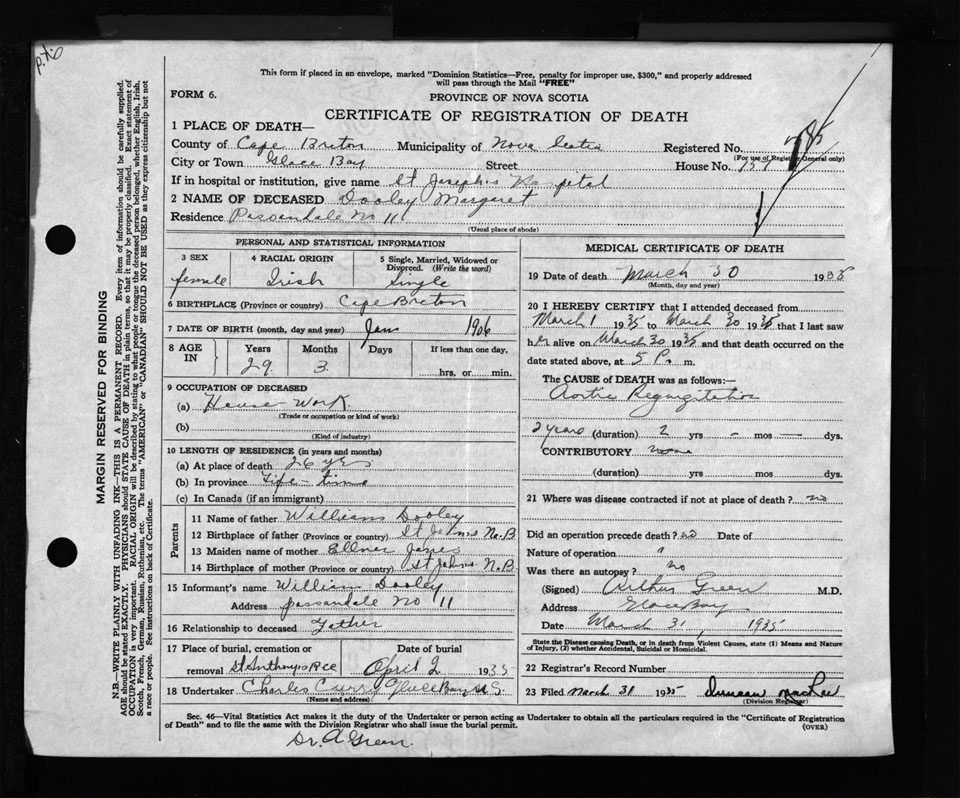 This form if placed in an envelope, marked "Dominion Statistics—Free, penalty for improper use, $300," and properly addressed
will pass through the Mail "FREE"
FORM 6.
PROVINCE OF NOVA SCOTIA
CERTIFICATE OF REGISTRATION OF DEATH
1 PLACE OF DEATH—
County of Cape Breton Municipality of Nova Scotia Registered No.
(For use of Registrar General only)
City or Town Glace Bay Street House No. 157
If in hospital or institution, give name St Joseph's Hospital
2 NAME OF DECEASED Dooley Margaret
Residence Passendale No 11
(Usual place of abode)
PERSONAL AND STATISTICAL INFORMATION
3 SEX 4 RACIAL ORIGIN 5 Single, Married, Widowed or Divorced. (Write the word)
female Irish Single
6 BIRTHPLACE (Province or country) Cape Breton
7 DATE OF BIRTH (month, day and year) Jan 1906
8 AGE IN Years Months Days If less than one day,
29 3 hrs. or min.
9 OCCUPATION OF DECEASED
(a) House Work
(Trade or occupation or kind of work)
(b)
(Kind of industry)
10 LENGTH OF RESIDENCE (in years and months)
(a) At place of death 26 yrs
(b) In province Life-time
(c) In Canada (if an immigrant)
Parents
11 Name of father William Dooley
12 Birthplace of father (Province or country) St Johns N.B
13 Maiden name of mother Ellner Jones
14 Birthplace of mother (Province or country) St Johns N.B
15 Informant's name William Dooley
Address passandale No 11
16 Relationship to deceased Father
17 Place of burial, cremation or Date of burial
removal St Anthonys R C C April 2 1935
18 Undertaker Charles Curry Glace Bay N.S
(Name and address)
MEDICAL CERTIFICATE OF DEATH
19 Date of death March 30 1935
(Month, day and year)
20 I HEREBY CERTIFY that I attended deceased from
March 1 1935 to March 30 1935 that I last saw
her alive on March 30 1935 and that death occurred on the
date stated above, at 5 P. m.
The CAUSE of DEATH was as follows:—
Aortic Regurgitation
2 years (duration) 2 yrs - mos — dys.
CONTRIBUTORY none
(duration) yrs. mos. dys.
21 Where was disease contracted if not at place of death? no
Did an operation precede death? no Date of
Nature of operation "
Was there an autopsy? no
(Signed) Arthur Green M.D.
Address Glace Bay
Date March 31, 1935
State the Disease causing Death, or in death from Violent Causes, state (1) Means and Nature
of Injury, (2) whether Accidental, Suicidal or Homicidal.
22 Registrar's Record Number
23 Filed March 31 1935 Duncan
(Division Registrar)
Sec. 46—Vital Statistics Act makes it the duty of the Undertaker or person acting as Undertaker to obtain all the particulars required in the "Certificate of Registration
of Death" and to file the same with the Division Registrar who shall issue the burial permit.
(OVER)
Dr. A Green.
MARGIN RESERVED FOR BINDING
N.B.—WRITE PLAINLY WITH UNFADING INK—THIS IS A PERMANENT RECORD. Every item of information should be carefully supplied.
AGE should be stated EXACTLY. PHYSICIANS should STATE CAUSE OF DEATH in plain terms, so that it may be properly classified. Exact statement of
OCCUPATION is very important. RACIAL ORIGIN will be described by stating to what people or tongue the deceased person belonged, whether English, Irish,
Scotch, French, German, Russian, Ruthenian, etc. The terms "AMERICAN" or "CANADIAN" SHOULD NOT BE USED as they express citizenship but not
a race or people. See instructions on back of Certificate.